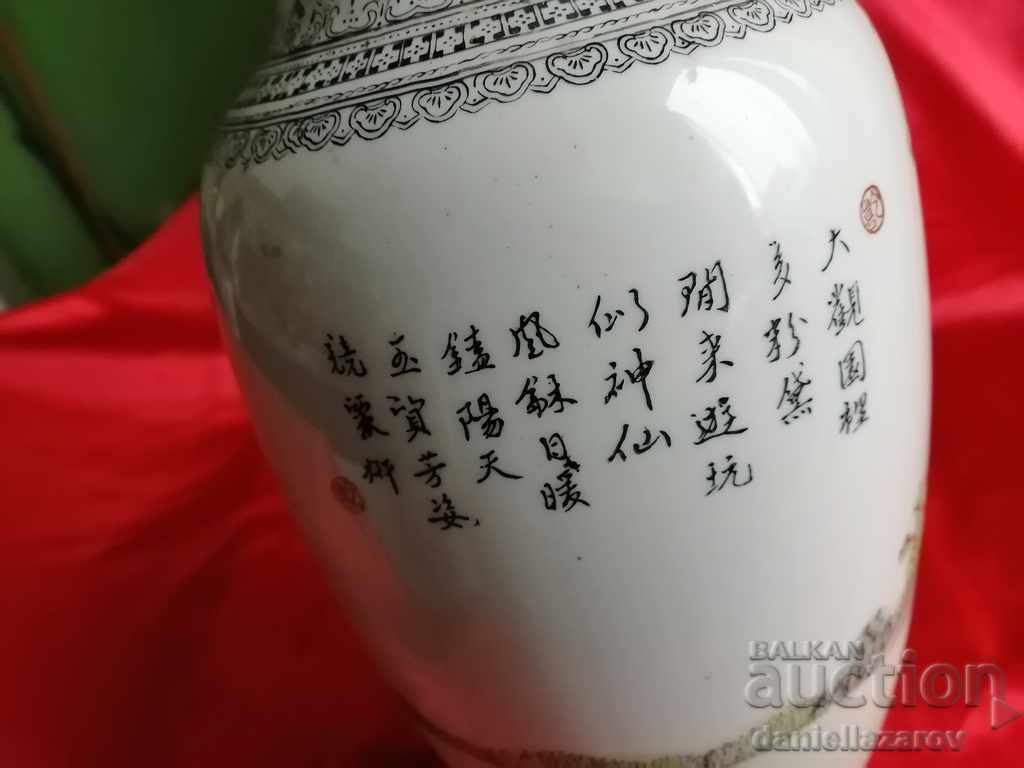 大觀園裡
多粉黛
閒来遊玩
似神仙
風穌日暖
陽天
玉資芳姿
競
BALKAN
auction
daniellazarov